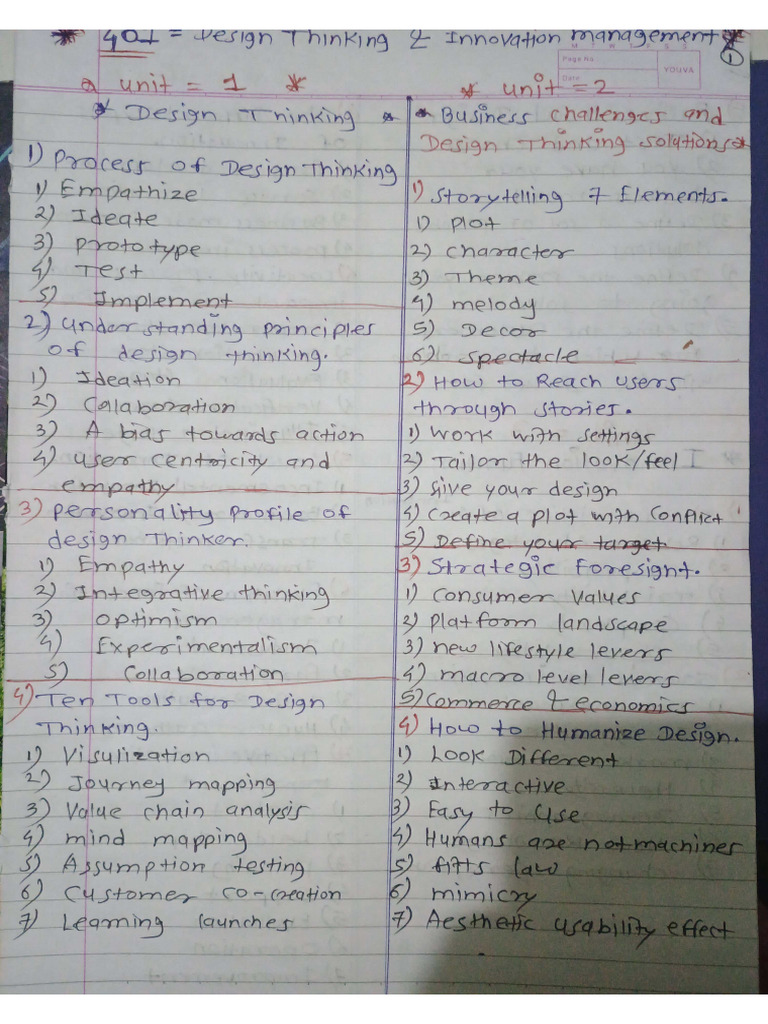 * 401 = Design Thinking & Innovation management *
1
Page No.
Date
YOUVA
unit = 1 *
* Design Thinking *
1) Process of Design Thinking
1) Empathize
2) Ideate
3) Prototype
4) Test
5) Implement
2) understanding principles
of design thinking.
1) Ideation
2) Calaboration
3) A bias towards action
4) user centricity and
empathy
3) personality profile of
design Thinker.
1) Empathy
2) Integrative thinking
3) optimism
4) Experimentalism
5) Collaboration
4) Ten Tools for Design
Thinking.
1) Visulization
2) Journey mapping
3) Value chain analysis
4) mind mapping
5) Assumption testing
6) Customer co-creation
7) Learning launches
* unit = 2
* Business challenges and
Design Thinking solutions *
1) Storytelling 7 Elements.
1) Plot
2) character
3) Theme
4) melody
5) Decor
6) Spectacle
2) How to Reach users
through stories.
1) Work with settings
2) Tailor the look/feel
3) Give your design
4) Create a plot with Conflict
5) Define your target
3) Strategic Foresignt.
1) Consumer Values
2) Platform landscape
3) new lifestyle levers
4) macro level levers
5) Commerce & economics
4) How to Humanize Design.
1) Look Different
2) Interactive
3) Easy to Use
4) Humans are not machines
5) fitts law
6) mimicry
7) Aesthetic usability effect